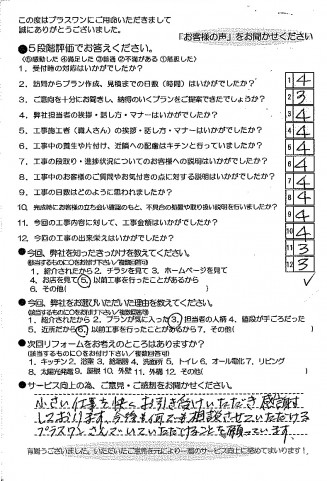 この度はプラスワンにご用命いただきまして
誠にありがとうございました。
「お客様の声」をお聞かせください
●5段階評価でお答えください。
(⑤感動した ④満足した ③普通 ②不満がある ①落胆した)
1. 受付時の対応はいかがでしたか？
1 4
2. 訪問からプラン作成、見積までの日数（時間）はいかがでしたか？
2 3
3. ご意向を十分にお聞きし、納得のいくプランをご提案できたでしょうか？
3 4
4. 弊社担当者の挨拶・話し方・マナーはいかがでしたか？
4 4
5. 工事施工者（職人さん）の挨拶・話し方・マナーはいかがでしたか？
5 4
6. 工事中の養生や片付け、近隣への配慮はキチンと行っていました
6 4
7. 工事の段取り・進捗状況についてのお客様への説明はいかがでしたか？
7 4
8. 工事中のお客様のご質問やお気付きの点に対する説明はいかがでしたか？
8 4
9. 工事の日数はどのように思われましたか？
9 4
10. 完成時にお客様の立ち会い確認のもと、不具合の処置や取り扱い説明を行いましたか？
10 4
11. 今回の工事内容に対して、工事金額はいかがでしたか？
11 3
12. 今回の工事の出来栄えはいかがでしたか？
12 3
●今回、弊社を知ったきっかけを教えてください。
(該当するものに○をお付け下さい／複数回答可)
1. 紹介されたから 2. チラシを見て 3. ホームページを見て
4. お店を見て 5. 以前工事を行ったことがあるから
6. その他( )
●今回、弊社をお選びいただいた理由を教えてください。
(該当するものに○をお付け下さい／複数回答可)
1. 紹介されたから 2. プランが気に入った 3. 担当者の人柄 4. 値段が手ごろだった
5. 近所だから 6. 以前工事を行ったことがあるから 7. その他( )
●次回リフォームをお考えのところはありますか？
(該当するものに○をお付け下さい／複数回答可)
1. キッチン 2. 浴室 3. 給湯器 4. 洗面所 5. トイレ 6. オール電化 7. リビング
8. 太陽光発電 9. 屋根 10. 外壁 11. 外構 12. その他( )
●サービス向上の為、ご意見・ご感想をお聞かせください。
小さい仕事を快くお引き合けいただき感謝
しております。今後も何でも相談させていただける
プラスワンさんでいていただけることを願っています。
有難うございました。いただいたご意見を元により一層のサービス向上に努めてまいります！